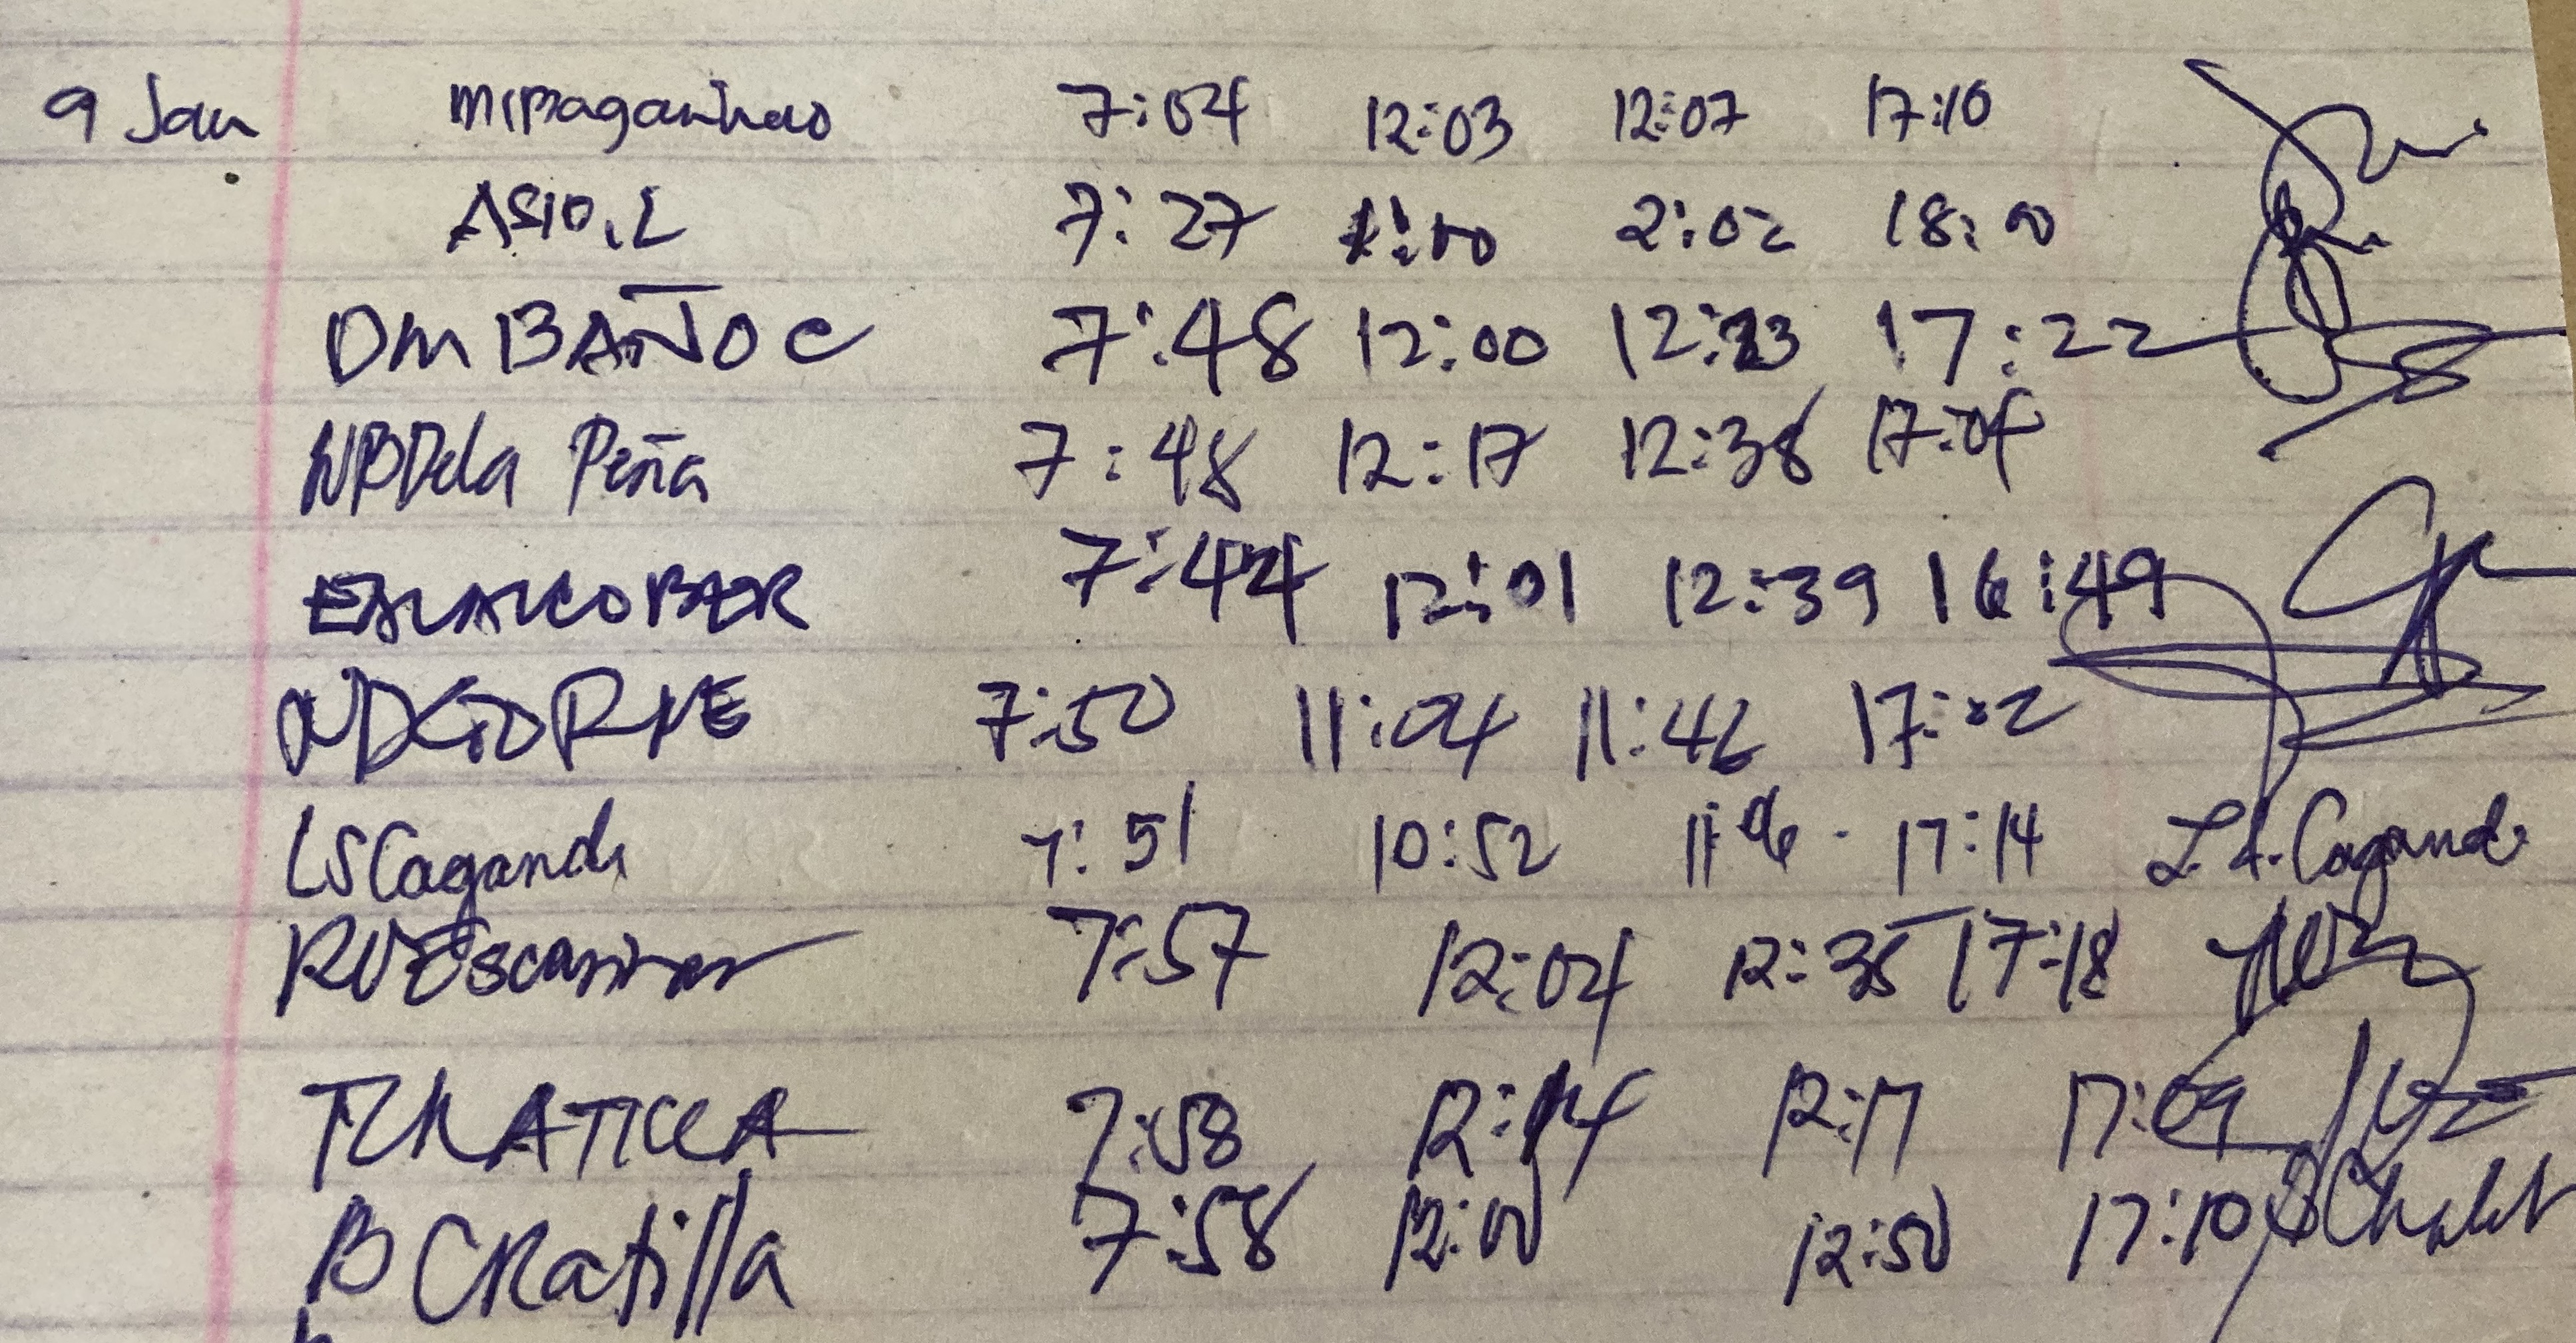 9 Jan 7:04 12:03 12:07 17:10
ASIO.L 7:27 2:02 18:00
DM BAÑOC 7:48 12:00 12:23 17:22
NBDela Peña 7:48 12:17 12:38 17:04
7:44 12:01 12:39 16:49
7:50 11:04 11:46 17:02
LSCagande 7:51 10:52 11:06 17:14 L.S. Cagande
7:57 12:04 12:35 17:18
12:14 12:17 17:09
7:58
B CRatilla 7:58 12:00 12:50 17:10